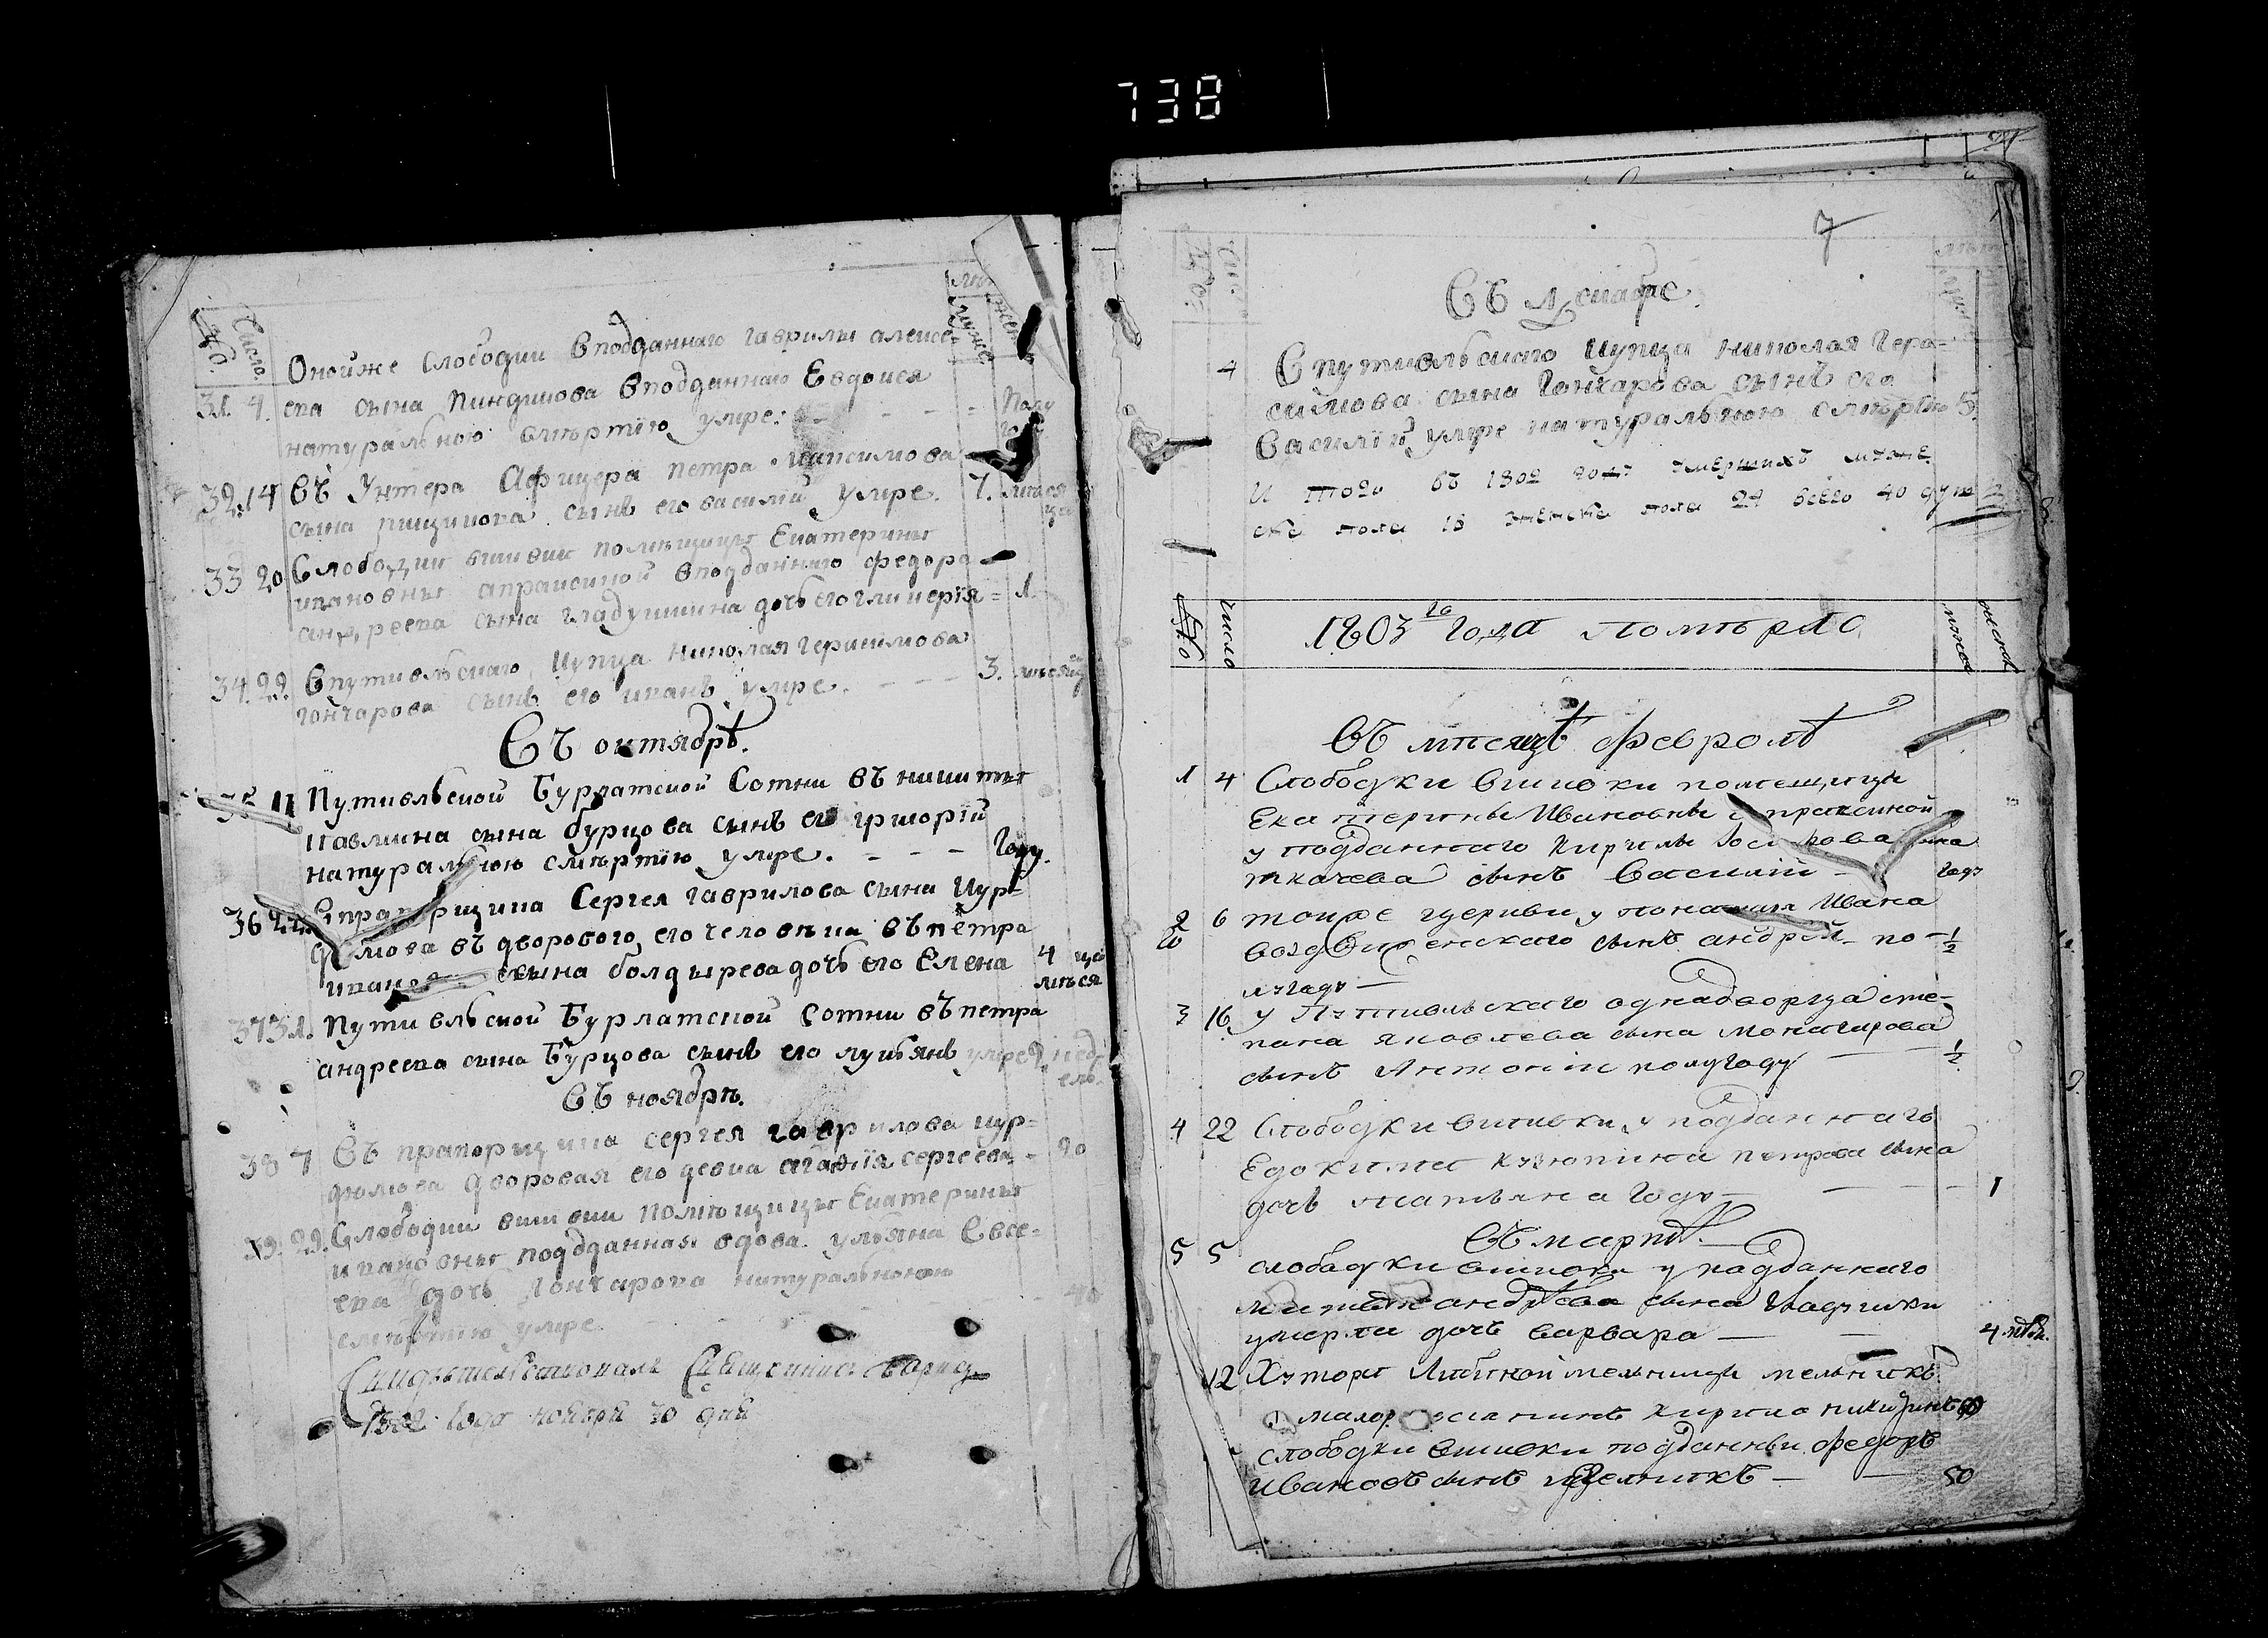 738
Число.
муже
жен
Оной же Слободки вподданнаго гаврилы алексе-
31. 4. ева сына пиндикова вподданнаго Евдокея
натуральною смертїю умре:
32. 14 въ Унтера Афицера петра максимова
сына сынъ его василїй умре. 7.
33 20 Слободки вшивки помѣщицы Екатерины
ивановны апраксиной вподданнаго федора
андреева сына гладушкина дочь его гликерїя - 1.
34. 22. Впутивльскаго купца николая герасимова
гончарова сынъ его иванъ умре. - - - 3. мѣсяц
Въ октябрѣ.
35 11 Путивльской Бурлатской Сотни въ никиты
павлина сына бурцова сынъ его григорїй
натуральною смѣртїю умре. - - - Году.
36 Впрапорщика Сергея гаврилова сына Кур-
дюмова въ дворового его человѣка въ пѣтра
иванова сына болдырева дочь его Елена 4
37 31. Путивльской Бурлатской Сотни въ петра
андреева сына Бурцова сынъ его лукьянъ умре 2. недѣ
ель.
Въ ноябрѣ.
38 7 Въ прапорщика сергея гаврилова кур-
дюмова дворовая его девка агафїя сергеева - 20
39. 22. Слободки вшивки помѣщицы Екатерины
ивановны подданная вдова ульяна Евсе-
ева дочь Гончарова натуральною
смѣртїю умре - 40
Свидѣтельствовалъ Священник
1802 года ноября 30 дня
7
Въ декабре.
4 Впутивльскаго купца николая Гера-
симова сына Гончарова сынъ его
Василїй умре натуральною смѣртїю 5.
И того въ 1802 году умершихъ муже
ска пола 16 женска пола 24 всего 40 душ
число
муже
женск
1803 го Года помѣрло
въ мѣсяцѣ февролѣ
1 4 Слободки вшивки помещицы
Екатерины Ивановны апраксиной
у подданнаго Кирилы сына
ткачева сынъ Василїй - Годъ
2 6 тоиже церкви у понамаря Ивана
воздвиженскаго сынъ андрей - по- 1/2
лугаду -
3 16 у Путивльскаго однадворца сте-
пана яковлева сына Монагирова
сынъ Антонїй полугаду 1/2
4 22 Слободки вшивки у подданнаго
Едокима Кузюпина петрова сына
дочь татьяна Году - 1
въ мартѣ.
5 5 слободки вшивки у падданнаго
андрѣева сына Гладушки
умерла дочь варвара - 4 нѣд.
12 Хутора Литкой мелницы мельникъ
малоросиянинъ Кирило
слободки вшивки подданны федоръ
Ивановъ сынъ - 50